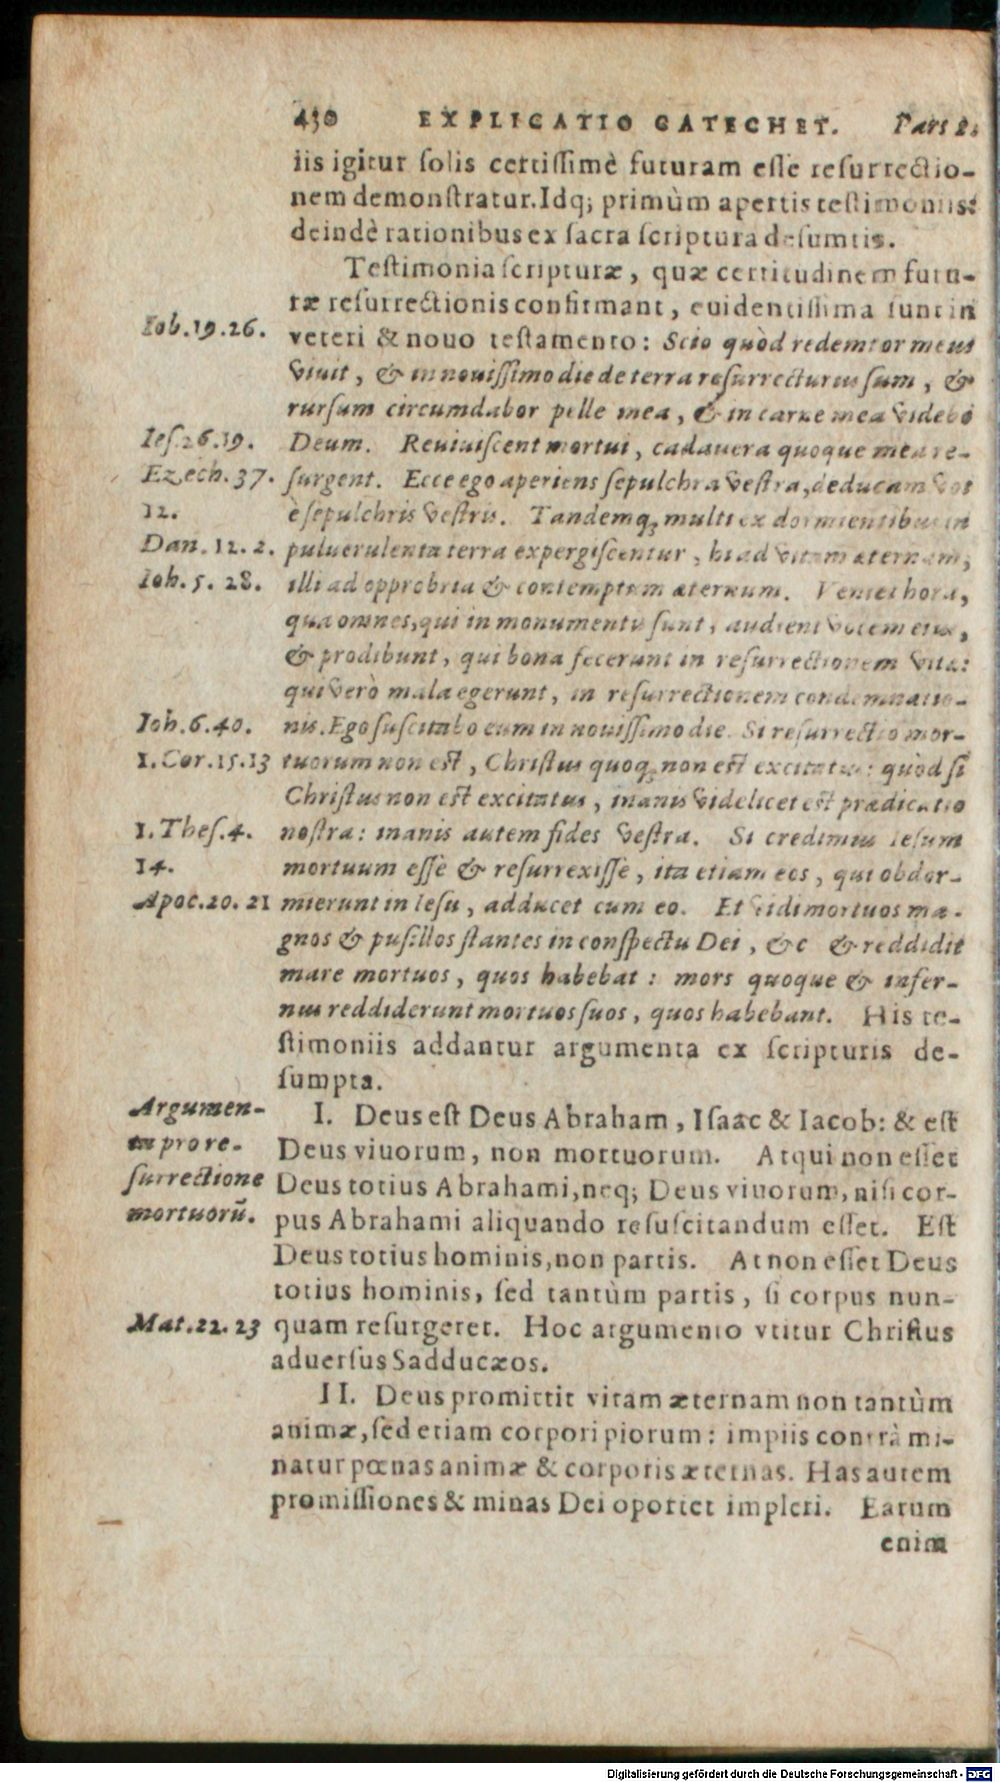 430 EXPLICATIO CATECHET. Pars 2.
iis igitur solis certissimè futuram esse resurrectio-
nem demonstratur. Idq; primùm apertis testimoniis:
deindè rationibus ex sacra scriptura desumtis.
Testimonia scripturæ, quæ certitudinem futu-
ræ resurrectionis confirmant, euidentissima sunt in
Iob. 19. 26. veteri & nouo testamento: Scio quòd redemtor meus
viuit, & in nouissimo die de terra resurrecturus sum, &
rursum circumdabor pelle mea, & in carne mea videbo
Ies. 26. 19. Deum. Reuiuiscent mortui, cadauera quoque mea re-
Ezech. 37. surgent. Ecce ego aperiens sepulchra vestra, deducam vos
12. è sepulchris vestris. Tandemq; multi ex dormientibus in
Dan. 12. 2. puluerulenta terra expergiscentur, hi ad vitam æternam,
Ioh. 5. 28. illi ad opprobria & contemptum æternum. Veniet hora,
qua omnes, qui in monumentis sunt, audient vocem eius,
& prodibunt, qui bona fecerunt in resurrectionem vitæ:
qui verò mala egerunt, in resurrectionem condemnatio-
Ioh. 6. 40. nis. Ego suscitabo eum in nouissimo die. Si resurrectio mor-
1. Cor. 15. 13 tuorum non est, Christus quoq; non est excitatus: quòd si
Christus non est excitatus, inanis videlicet est prædicatio
1. Thes. 4. nostra: inanis autem fides vestra. Si credimus Iesum
14. mortuum esse & resurrexisse, ita etiam eos, qui obdor-
Apoc. 20. 21 mierunt in Iesu, adducet cum eo. Et vidi mortuos ma-
gnos & pusillos stantes in conspectu Dei, &c & reddidit
mare mortuos, quos habebat: mors quoque & infer-
nus reddiderunt mortuos suos, quos habebant. His te-
stimoniis addantur argumenta ex scripturis de-
sumpta.
Argumen- I. Deus est Deus Abraham, Isaac & Iacob: & est
ta pro re- Deus viuorum, non mortuorum. Atqui non esset
surrectione Deus totius Abrahami, neq; Deus viuorum, nisi cor-
mortuorũ. pus Abrahami aliquando resuscitandum esset. Est
Deus totius hominis, non partis. At non esset Deus
totius hominis, sed tantùm partis, si corpus nun-
Mat. 22. 23 quam resurgeret. Hoc argumento vtitur Christus
aduersus Sadducæos.
II. Deus promittit vitam æternam non tantùm
animæ, sed etiam corpori piorum: impiis contrà mi-
natur pœnas animæ & corporis æternas. Has autem
promissiones & minas Dei oportet impleri. Earum
enim
Digitalisierung gefördert durch die Deutsche Forschungsgemeinschaft - DFG